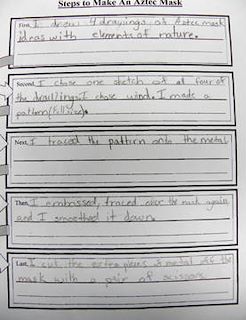 Steps to Make An Aztec Mask
First, I drew 4 drawings of Aztec mask
ideas with elements of nature.
Second, I chose one sketch out of four of
the drawings. I chose wind. I made a
pattern (full size).
Next, I traced the pattern onto the metal
Then, I embossed, traced over the mask again
and I smoothed it down.
Last, I cut the extra pieces of metal off the
mask with a pair of scissors